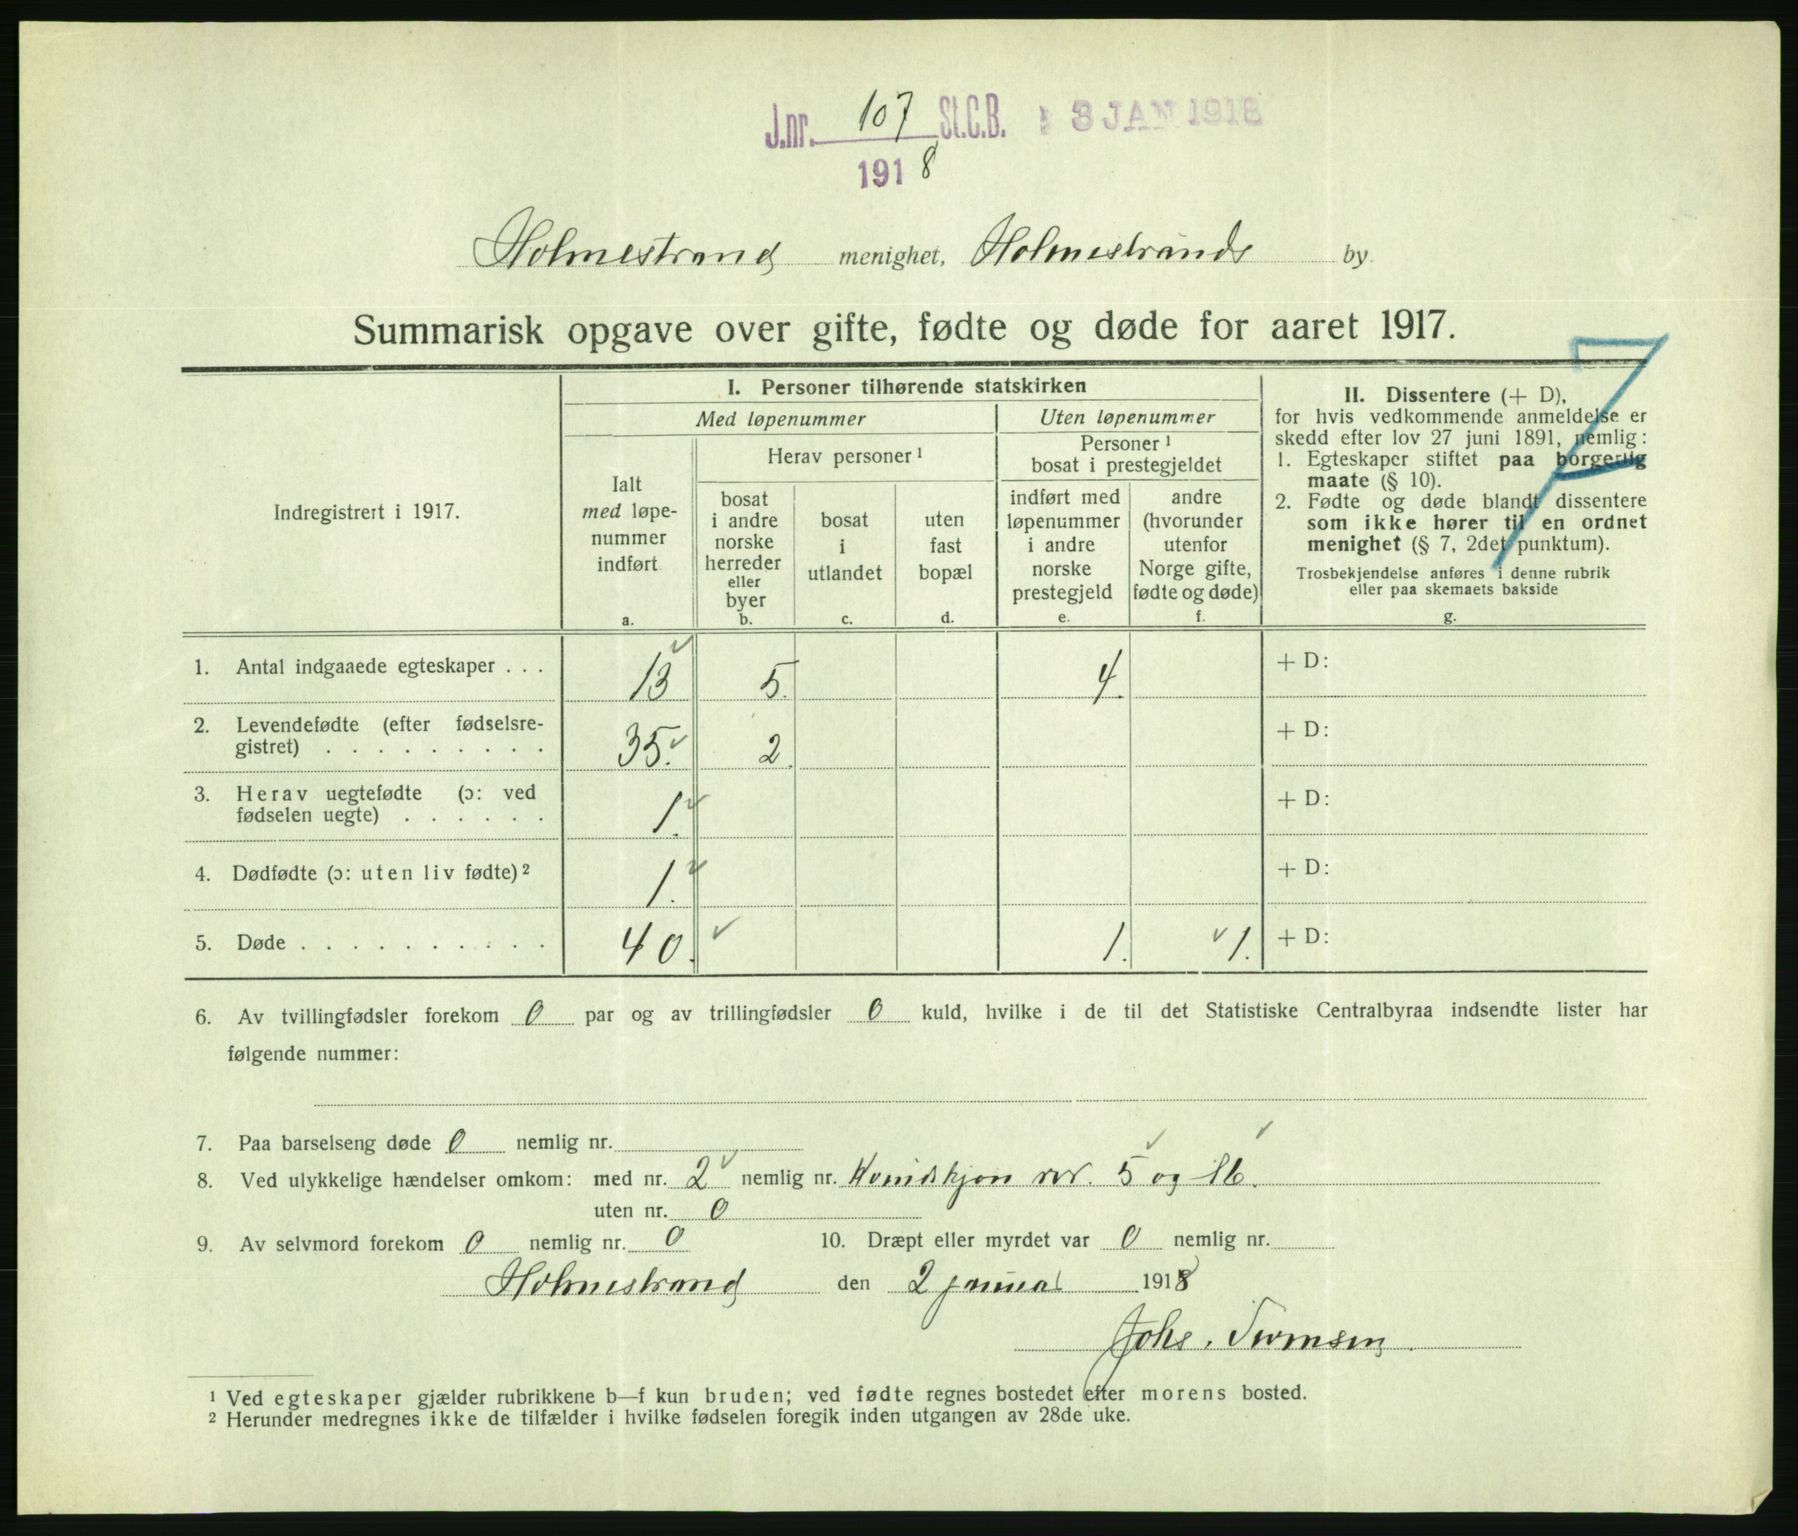 J.nr. 107 St.C.B. 3 JAN 1918
1918
Holmestrand menighet, Holmestrands by
Summarisk opgave over gifte, fødte og døde for aaret 1917.
Indregistrert i 1917.
I. Personer tilhørende statskirken
Med løpenummer
Uten løpenummer
Ialt
med løpe-
nummer
indført
a.
Herav personer 1
bosat
i andre
norske
herreder
eller
byer
b.
bosat
i
utlandet
c.
uten
fast
bopæl
d.
Personer 1
bosat i prestegjeldet
indført med
løpenummer
i andre
norske
prestegjeld
e.
andre
(hvorunder
utenfor
Norge gifte,
fødte og døde)
f.
II. Dissentere (+ D),
for hvis vedkommende anmeldelse er
skedd efter lov 27 juni 1891, nemlig:
1. Egteskaper stiftet paa borgerlig
maate (§ 10).
2. Fødte og døde blandt dissentere
som ikke hører til en ordnet
menighet (§ 7, 2det punktum).
Trosbekjendelse anføres i denne rubrik
eller paa skemaets bakside
g.
1. Antal indgaaede egteskaper . . . 13 5. 4. + D:
2. Levendefødte (efter fødselsre-
gistret) . . . . . . . . . 35. 2. + D:
3. Herav uegtefødte (ɔ: ved
fødselen uegte) . . . . . . 1. + D:
4. Dødfødte (ɔ: uten liv fødte) 2 1. + D:
5. Døde . . . . . . . . . . 40. 1. 1. + D:
6. Av tvillingfødsler forekom 0 par og av trillingfødsler 0 kuld, hvilke i de til det Statistiske Centralbyraa indsendte lister har
følgende nummer:
7. Paa barselseng døde 0 nemlig nr.
8. Ved ulykkelige hændelser omkom: med nr. 2 nemlig nr. Kvindskjøn nr. 5 og 16.
uten nr. 0
9. Av selvmord forekom 0 nemlig nr. 0 10. Dræpt eller myrdet var 0 nemlig nr.
Holmestrand den 2 januar 1918
Johs.
1 Ved egteskaper gjælder rubrikkene b—f kun bruden; ved fødte regnes bostedet efter morens bosted.
2 Herunder medregnes ikke de tilfælder i hvilke fødselen foregik inden utgangen av 28de uke.